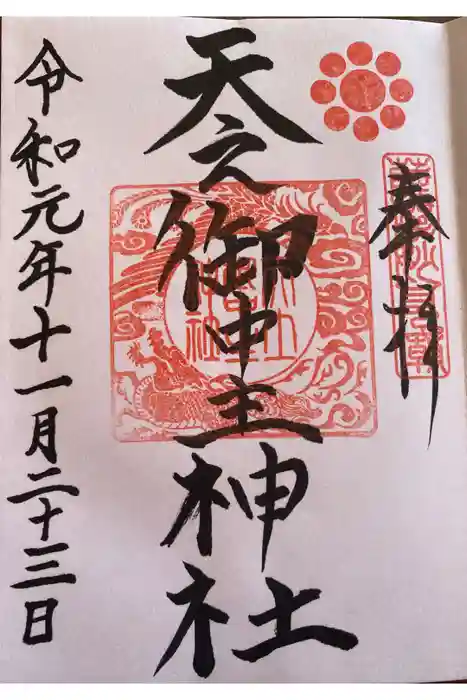 奉拝
天之御中主神社
令和元年十一月二十三日